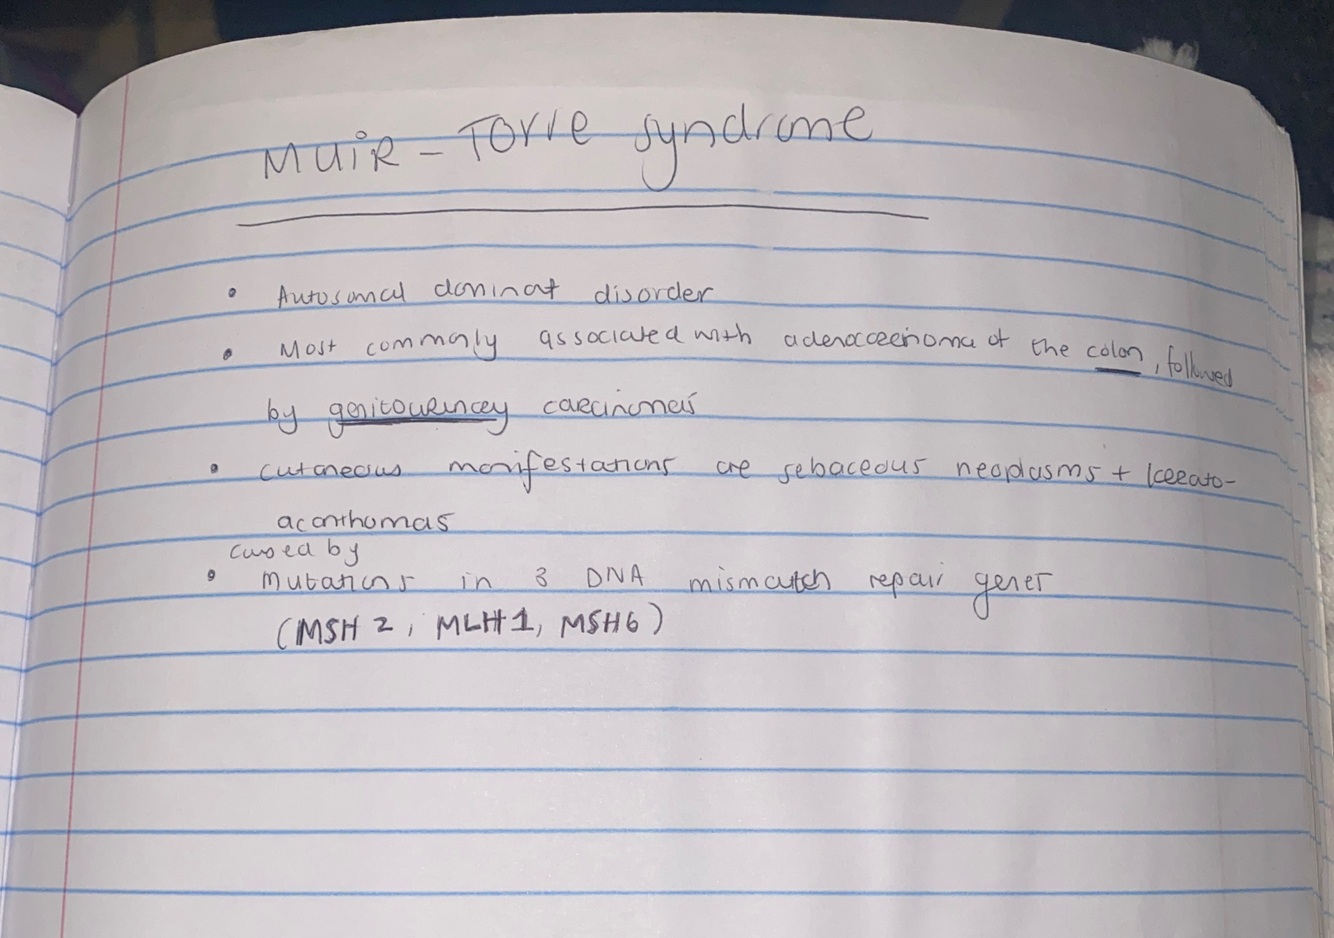 Muir - Torre syndrome
• Autosomal dominat disorder
• Most commonly associated with adenocarcinoma of the colon, followed
by genitourincey carcinomas
• cutaneous manifestations are sebaceous neoplasms + kerato-
acanthomas
caused by
• mutations in 3 DNA mismatch repair genes
(MSH 2, MLH1, MSH6)